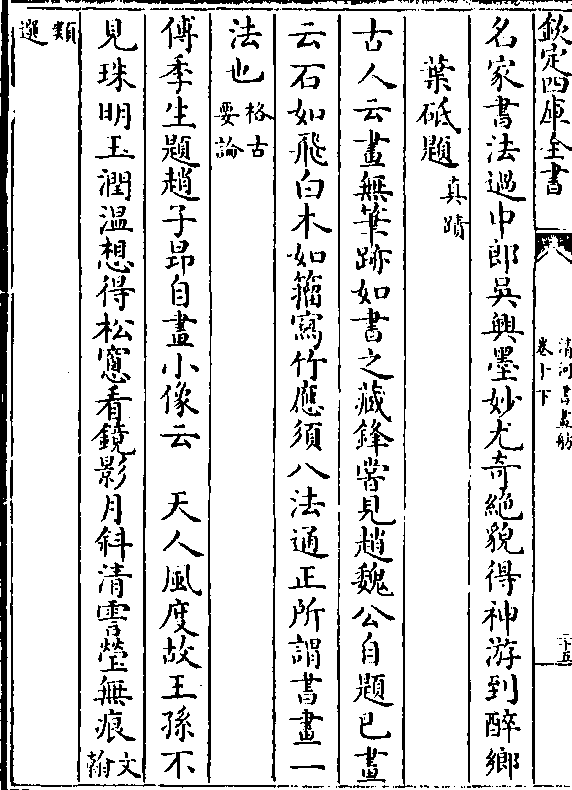 欽定四庫全書
清河書畫舫
卷十下
二十五
名家書法過中郎吳興墨妙尤奇絶貌得神游到醉鄉
葉砥題真蹟
古人云畫無筆跡如書之藏鋒嘗見趙魏公自題已畫
云石如飛白木如籀寫竹應須八法通正所謂書畫一
法也格古要論
傅季生題趙子昂自畫小像云　天人風度故王孫不
見珠明玉潤温想得松窓看鏡影月斜清霅瑩無痕文翰
類選